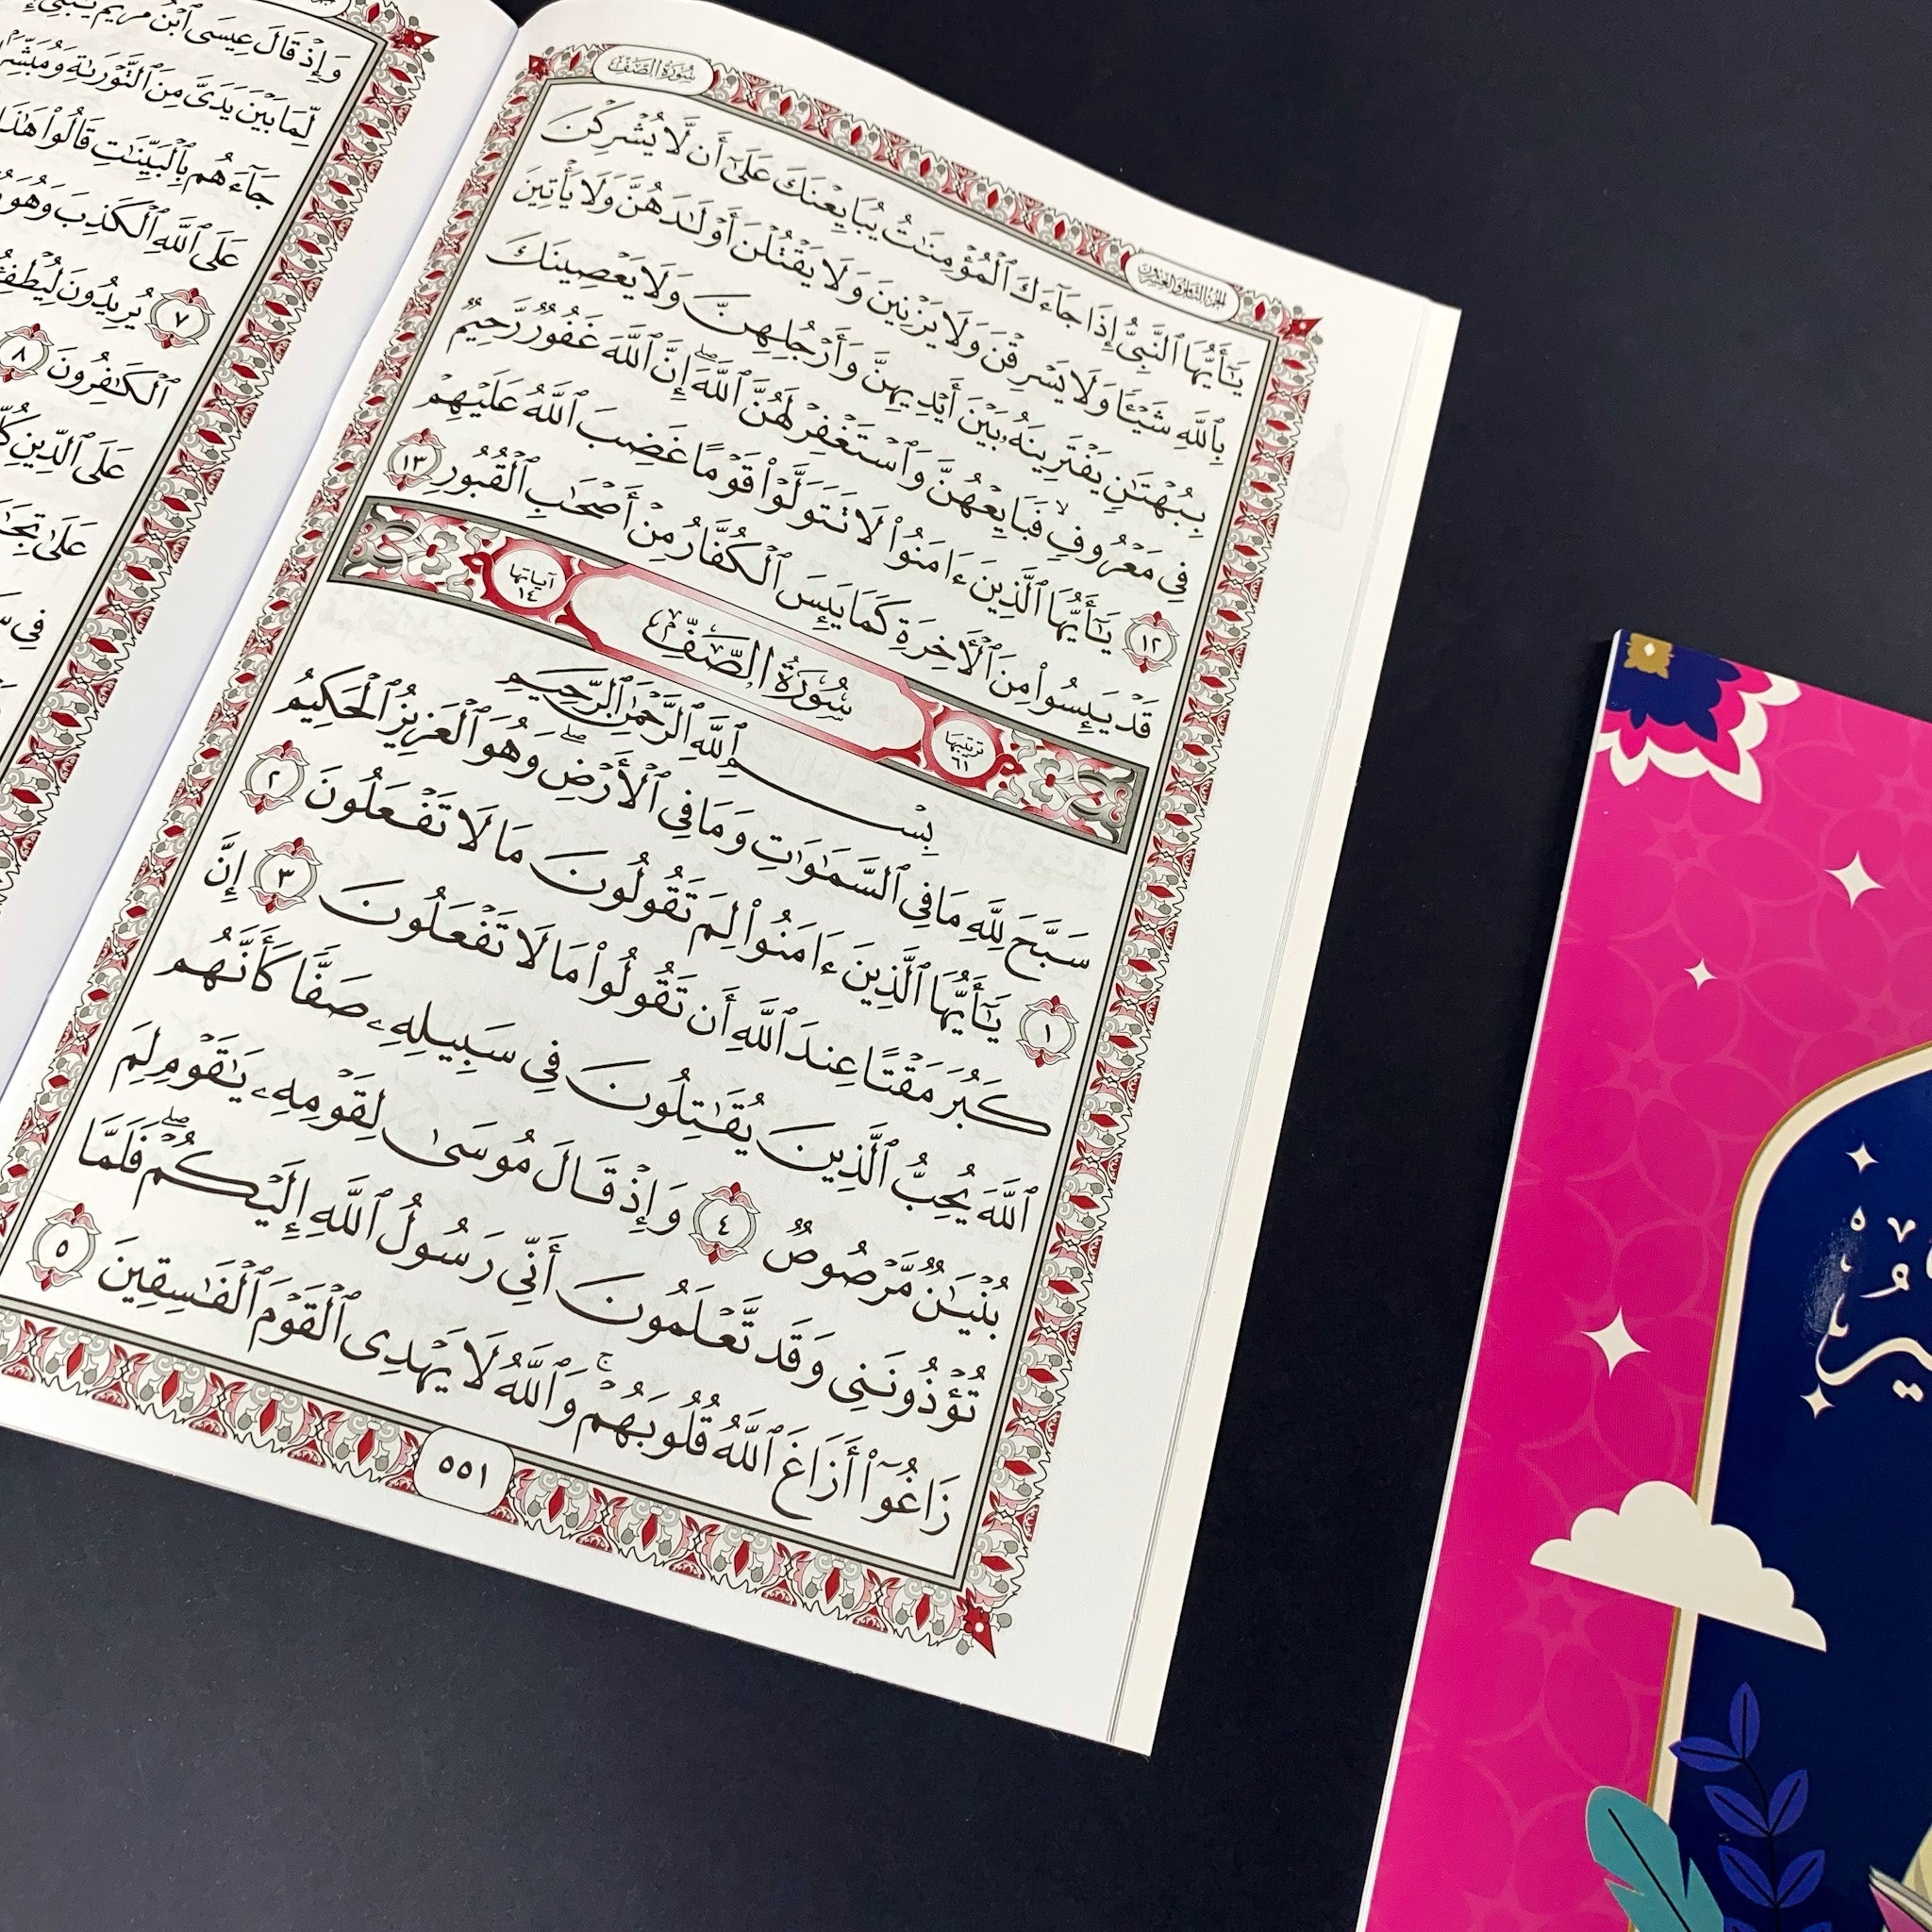 سُورَةُ الصَّفِّ
الجُزْءُ الثَّامِنُ وَالعِشْرُونَ
يَٰٓأَيُّهَا ٱلنَّبِىُّ إِذَا جَآءَكَ ٱلْمُؤْمِنَٰتُ يُبَايِعْنَكَ عَلَىٰٓ أَن لَّا يُشْرِكْنَ
بِٱللَّهِ شَيْـًٔا وَلَا يَسْرِقْنَ وَلَا يَزْنِينَ وَلَا يَقْتُلْنَ أَوْلَٰدَهُنَّ وَلَا يَأْتِينَ
بِبُهْتَٰنٍ يَفْتَرِينَهُۥ بَيْنَ أَيْدِيهِنَّ وَأَرْجُلِهِنَّ وَلَا يَعْصِينَكَ
فِى مَعْرُوفٍ ۙ فَبَايِعْهُنَّ وَٱسْتَغْفِرْ لَهُنَّ ٱللَّهَ ۖ إِنَّ ٱللَّهَ غَفُورٌ رَّحِيمٌ
١٢ يَٰٓأَيُّهَا ٱلَّذِينَ ءَامَنُوا۟ لَا تَتَوَلَّوْا۟ قَوْمًا غَضِبَ ٱللَّهُ عَلَيْهِمْ
قَدْ يَئِسُوا۟ مِنَ ٱلْءَاخِرَةِ كَمَا يَئِسَ ٱلْكُفَّارُ مِنْ أَصْحَٰبِ ٱلْقُبُورِ ١٣
ترتيبها ٦١ سُورَةُ الصَّفِّ آياتها ١٤
بِسْمِ ٱللَّهِ ٱلرَّحْمَٰنِ ٱلرَّحِيمِ
سَبَّحَ لِلَّهِ مَا فِى ٱلسَّمَٰوَٰتِ وَمَا فِى ٱلْأَرْضِ ۖ وَهُوَ ٱلْعَزِيزُ ٱلْحَكِيمُ
١ يَٰٓأَيُّهَا ٱلَّذِينَ ءَامَنُوا۟ لِمَ تَقُولُونَ مَا لَا تَفْعَلُونَ ٢
كَبُرَ مَقْتًا عِندَ ٱللَّهِ أَن تَقُولُوا۟ مَا لَا تَفْعَلُونَ ٣ إِنَّ
ٱللَّهَ يُحِبُّ ٱلَّذِينَ يُقَٰتِلُونَ فِى سَبِيلِهِۦ صَفًّا كَأَنَّهُم
بُنْيَٰنٌ مَّرْصُوصٌ ٤ وَإِذْ قَالَ مُوسَىٰ لِقَوْمِهِۦ يَٰقَوْمِ لِمَ
تُؤْذُونَنِى وَقَد تَّعْلَمُونَ أَنِّى رَسُولُ ٱللَّهِ إِلَيْكُمْ ۖ فَلَمَّا
زَاغُوٓا۟ أَزَاغَ ٱللَّهُ قُلُوبَهُمْ ۚ وَٱللَّهُ لَا يَهْدِى ٱلْقَوْمَ ٱلْفَٰسِقِينَ ٥
٥٥١
وَإِذْ قَالَ عِيسَى ٱبْنُ مَرْيَمَ
لِّمَا بَيْنَ يَدَىَّ مِنَ ٱلتَّوْرَىٰةِ وَمُبَشِّرًۢا
جَآءَهُم بِٱلْبَيِّنَٰتِ قَالُوا۟ هَٰذَا
عَلَى ٱللَّهِ ٱلْكَذِبَ وَهُوَ
٧ يُرِيدُونَ
ٱلْكَٰفِرُونَ ٨
عَلَى ٱلدِّينِ
عَلَىٰ
فِى